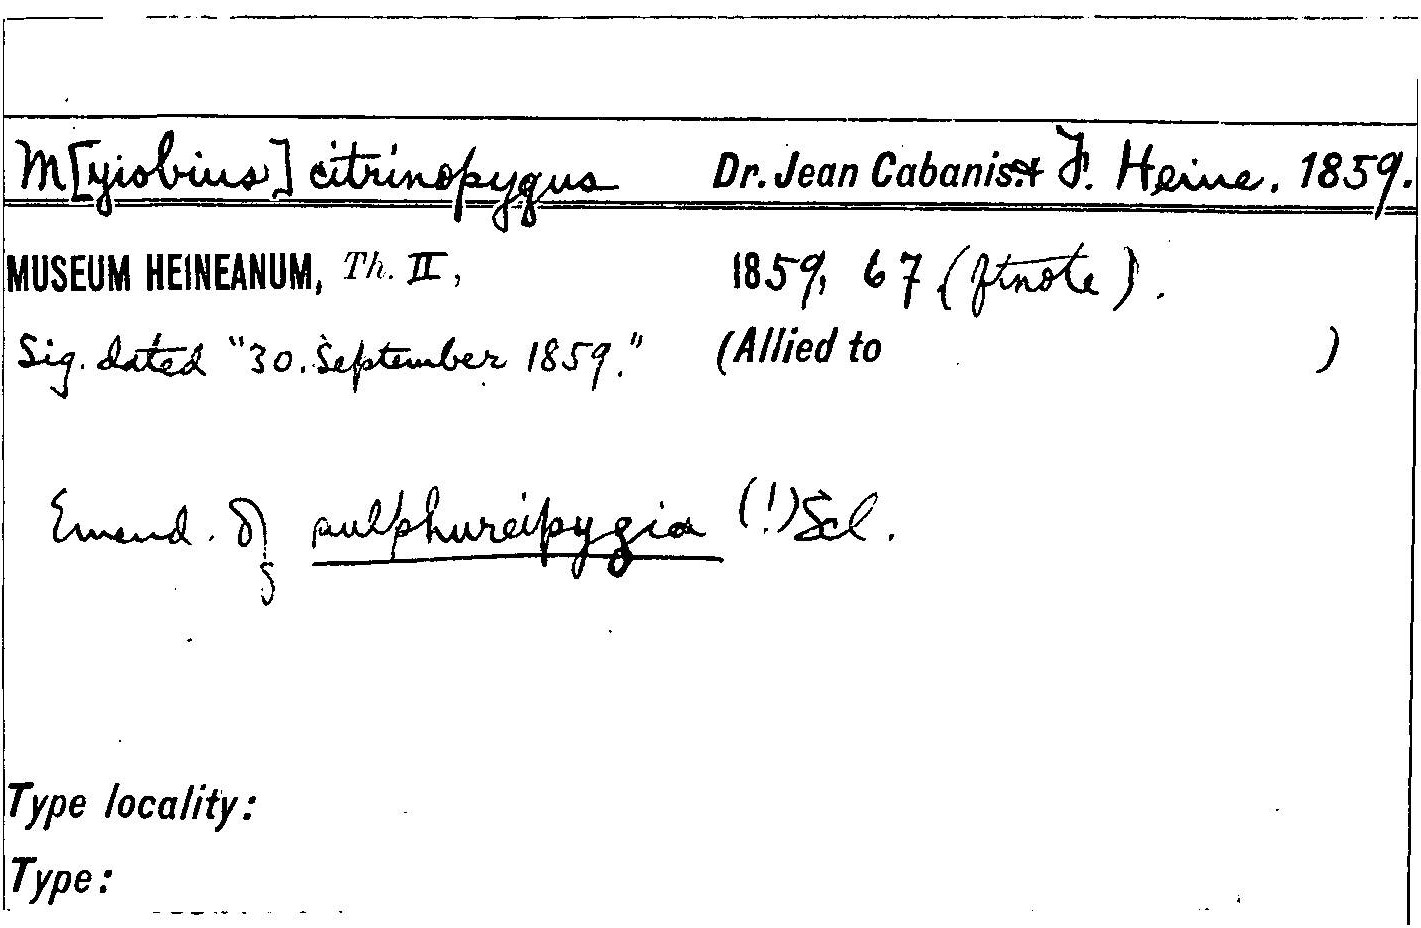 M[yiobius] citrinopygus Dr. Jean Cabanis. & F. Heine. 1859.
MUSEUM HEINEANUM, Th. II, 1859, 67 (ftnote).
Sig. dated "30. September 1859." (Allied to )
Emend. of sulphureipygia (!) Scl.
Type locality:
Type: